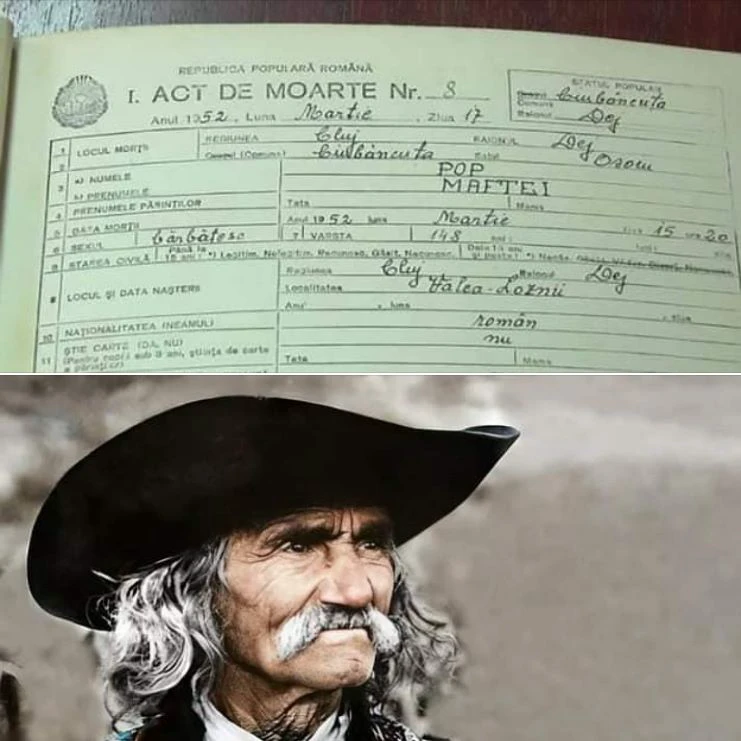 REPUBLICA POPULARĂ ROMÂNĂ
I. ACT DE MOARTE Nr. 8
STATUL POPULAR
Comuna Ciubăncuța
Raionul Dej
Anul 1952, Luna Martie, Ziua 17
1 LOCUL MORȚII REGIUNEA Cluj RAIONUL Dej
(Comuna) Ciubăncuța Satul
2
3 a) NUMELE POP
b) PRENUMELE MAFTEI
4 PRENUMELE PĂRINȚILOR Tata Mama
5 DATA MORȚII Anul 1952 luna Martie 15 ora 20
6 SEXUL bărbătesc 7 VÂRSTA 148
8 STAREA CIVILĂ Până la 15 ani *) Legitim, Nelegitim, Recunosc, Găsit, Necunosc.
LOCUL ȘI DATA NAȘTERII Regiunea Cluj Raionul Dej
Localitatea Valea-Loznii
Anul luna ziua
10 NAȚIONALITATEA (NEAMUL) român
11 ȘTIE CARTE (DA, NU) nu
(Pentru copii sub 8 ani, știința de carte a părinților) Tata Mama